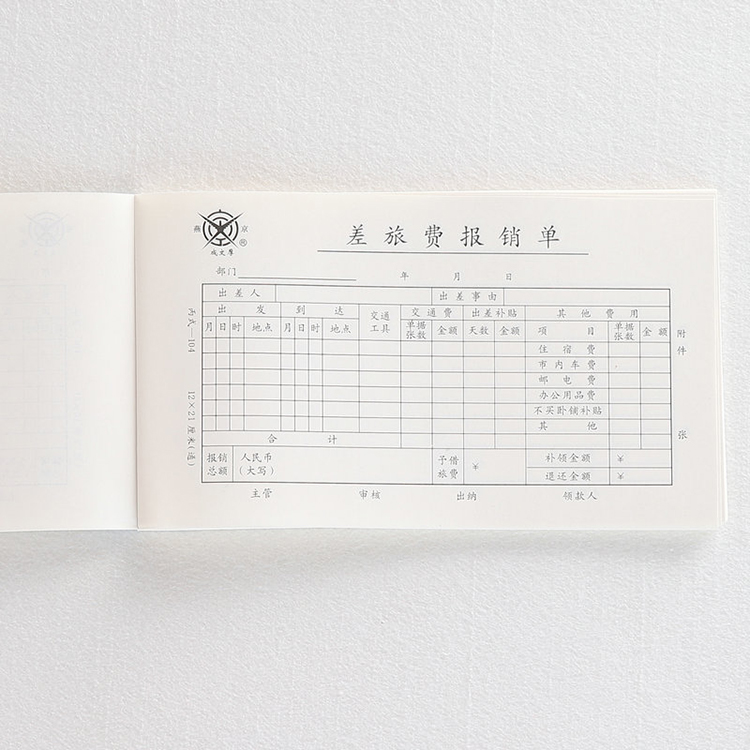 燕 京
成文厚
差旅费报销单
部门 年 月 日
出差人 出差事由
出发 到达 交通工具 交通费 出差补贴 其他费用
月 日 时 地点 月 日 时 地点 单据张数 金额 天数 金额 项目 单据张数 金额
住宿费
市内车费
邮电费
办公用品费
不买卧铺补贴
其他
合计
报销总额 人民币(大写) 予借旅费 ¥ 补领金额 ¥
退还金额 ¥
主管 审核 出纳 领款人
丙式—104 12×21厘米(通)
附件 张